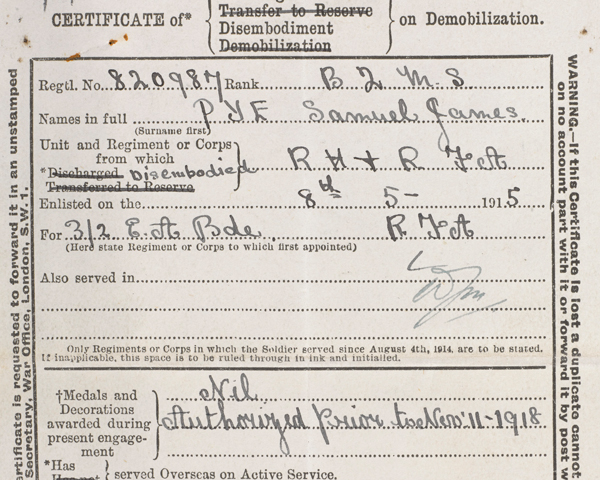 Transfer to Reserve
CERTIFICATE of* Disembodiment on Demobilization.
Demobilization
Regtl. No. 820987 Rank B Q M S
Names in full PYE Samuel James.
(Surname first)
Unit and Regiment or Corps
from which R H & R F A
*Discharged Disembodied
Transferred to Reserve
Enlisted on the 8th 5- 1915
For 3/2 E.A Bde. R F A
(Here state Regiment or Corps to which first appointed)
Also served in
Only Regiments or Corps in which the Soldier served since August 4th, 1914, are to be stated.
If inapplicable, this space is to be ruled through in ink and initialled.
†Medals and Nil
Decorations
awarded during Authorized prior to Nov 11-1918
present engage-
ment
*Has
Has not served Overseas on Active Service.
ertificate is requested to forward it in an unstamped
Secretary, War Office, London, S.W. 1.
WARNING.—If this Certificate is lost a duplicate cannot
on no account part with it or forward it by post w